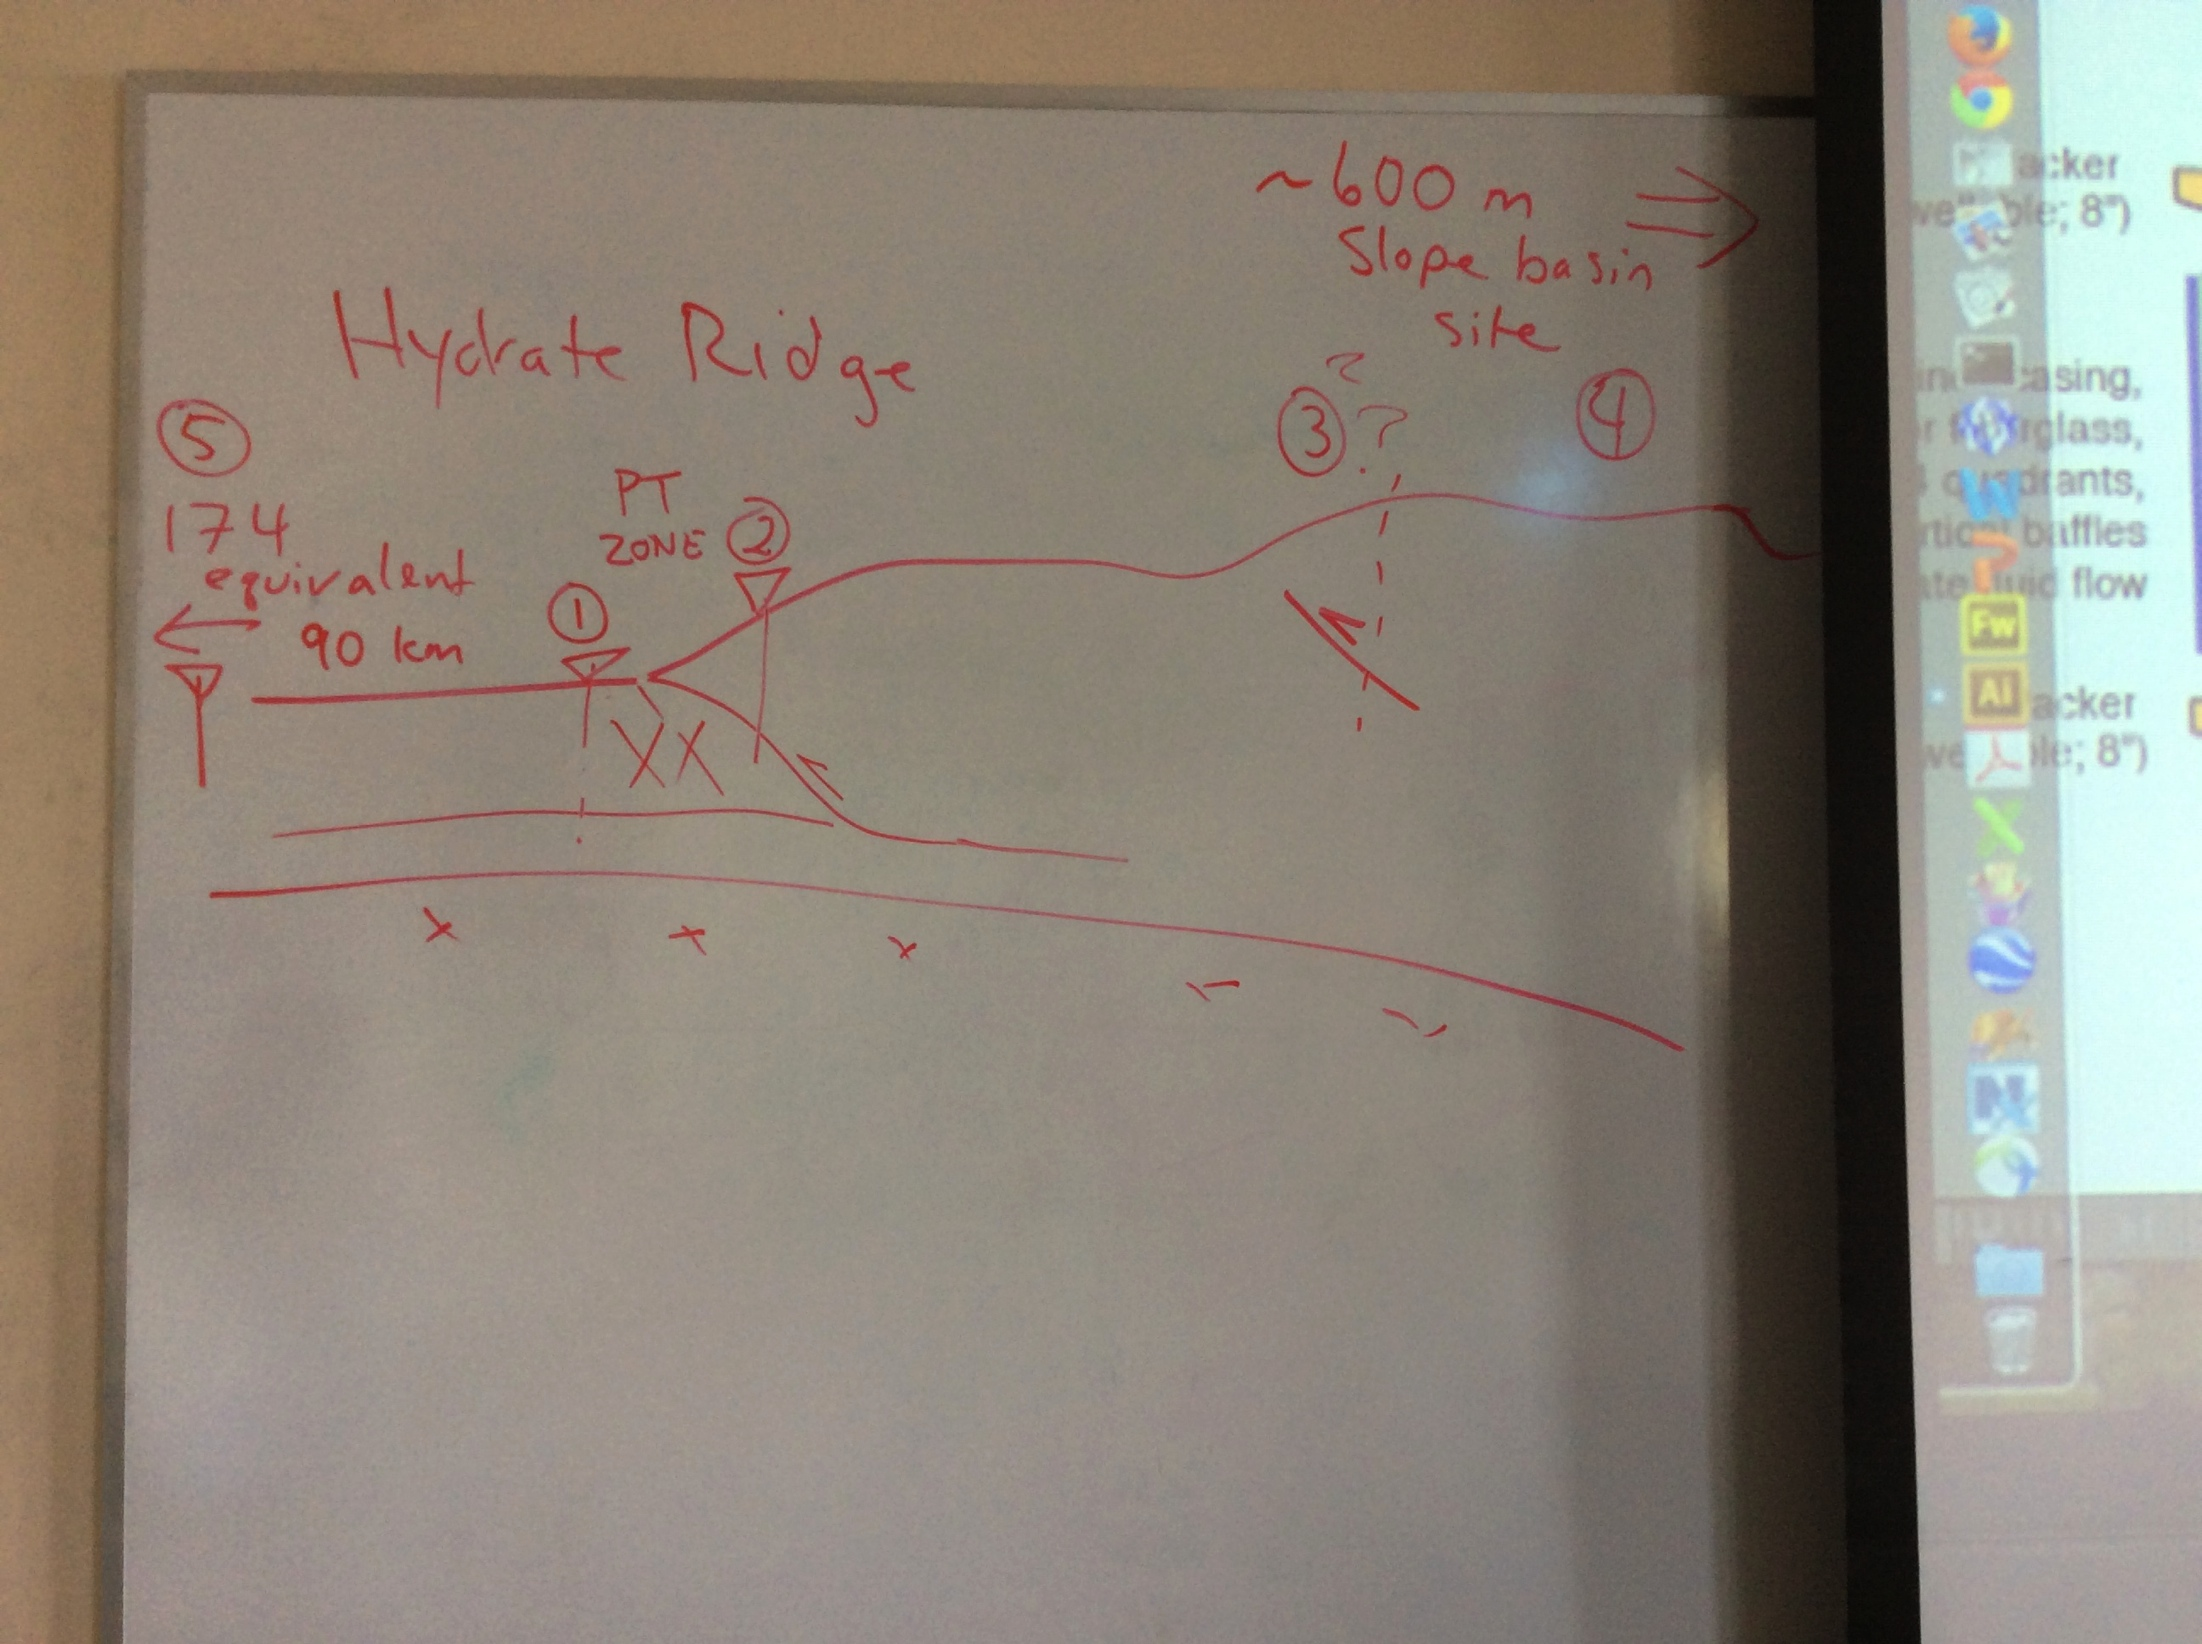 ~600 m
Slope basin
site
Hydrate Ridge
?
③ ?
④
⑤
174
equivalent
90 km
PT
ZONE
②
①
XX
acker
8")
casing,
quadrants,
baffles
fluid flow
Fw
Ai
acker
8")